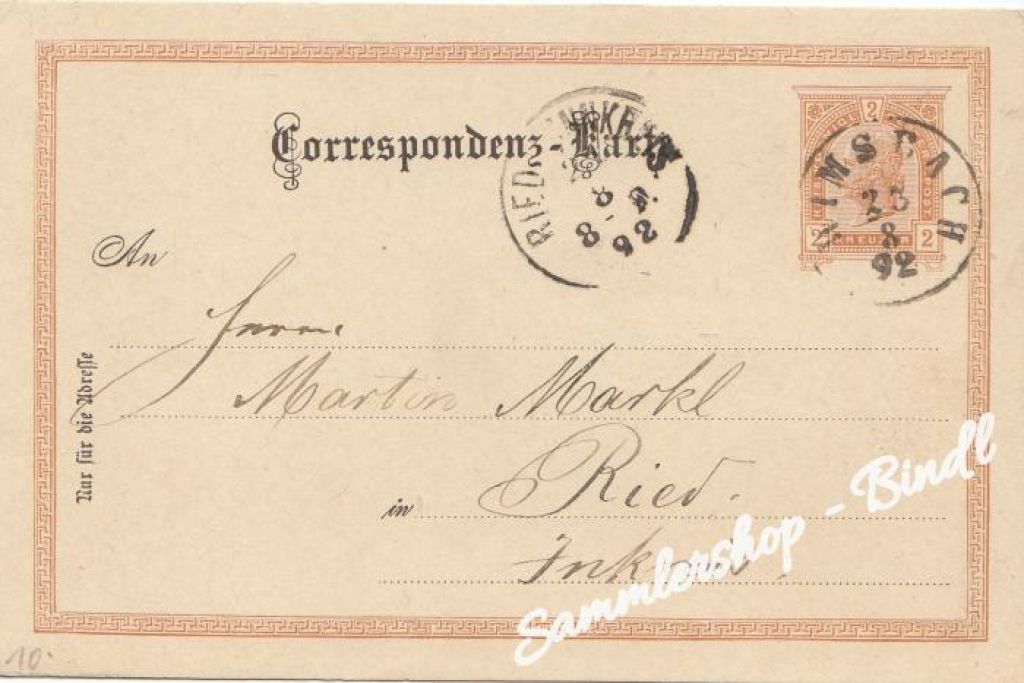 Correspondenz-Karte
2
2 KREUZER 2
RIED INNKREIS
8 8 92
RIMSBACH
23
8
92
An
Herrn
Martin Markl
in Ried.
Nur für die Adresse
Sammlershop - Bindl
10.